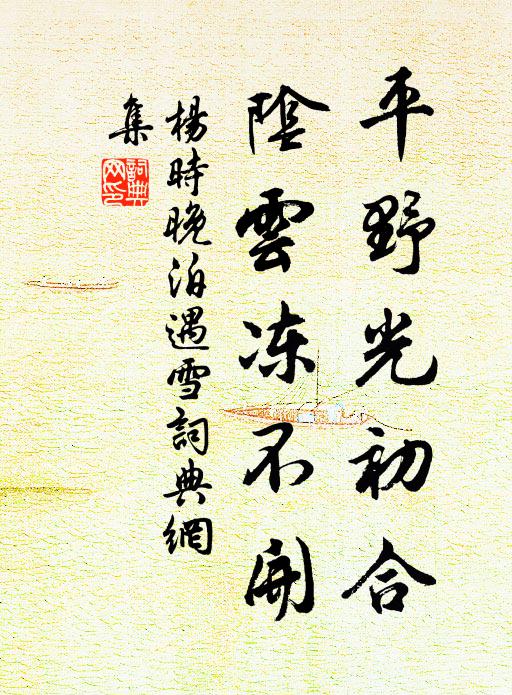 平野光初合
陰雲冻不開
楊時晚泊遇雪詞典網
集
詞典網印